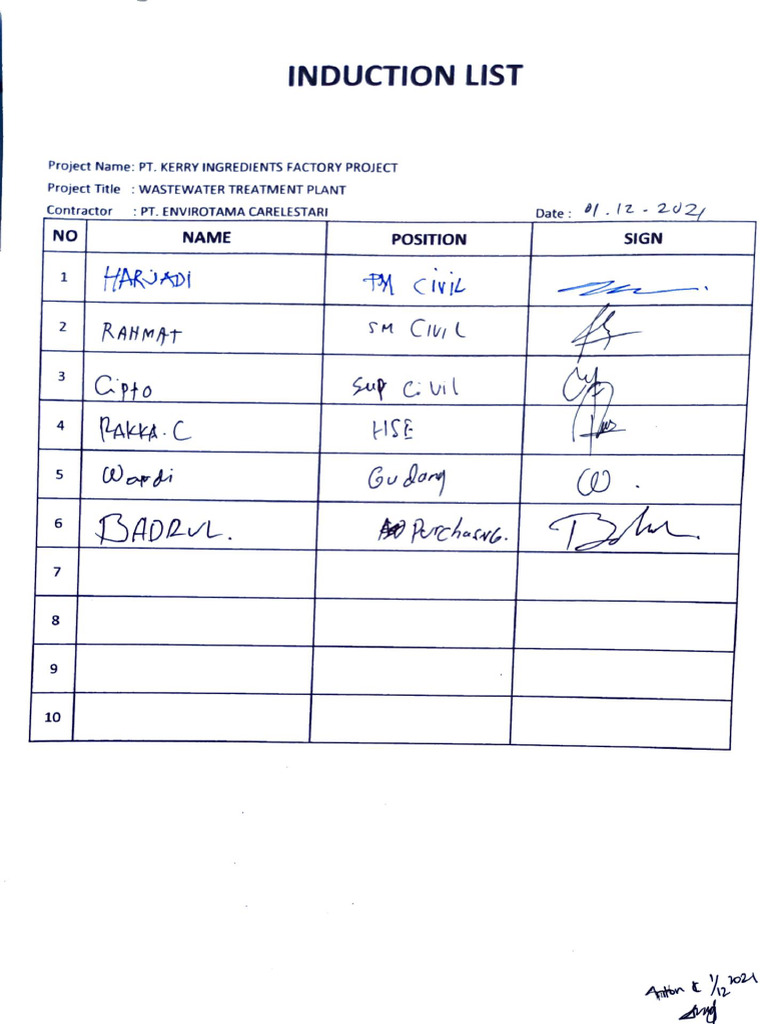 INDUCTION LIST
Project Name: PT. KERRY INGREDIENTS FACTORY PROJECT
Project Title : WASTEWATER TREATMENT PLANT
Contractor : PT. ENVIROTAMA CARELESTARI
Date : 01.12-2021
NO NAME POSITION SIGN
1 HARJADI PM CIVIL
2 RAHMAT SM CIVIL
3 Cipto Sup Civil
4 RAKKA.C HSE
5 Wardi Gudang
6 BADRUL. Purchasing.
7
8
9
10
Anton 1/12 2021